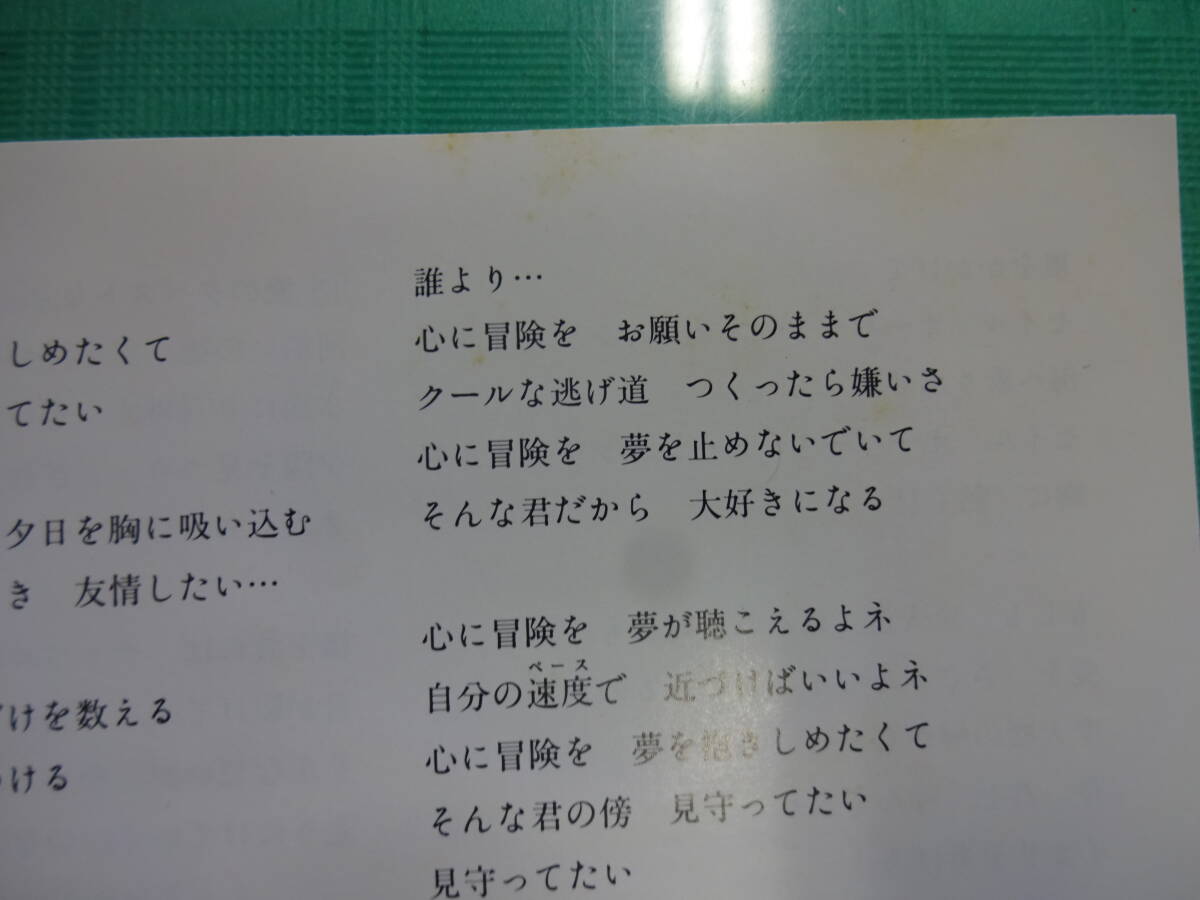 しめたくて
てたい
夕日を胸に吸い込む
き　友情したい…
けを数える
ける
誰より…
心に冒険を　お願いそのままで
クールな逃げ道　つくったら嫌いさ
心に冒険を　夢を止めないでいて
そんな君だから　大好きになる
心に冒険を　夢が聴こえるよネ
ペース
自分の速度で　近づけばいいよネ
心に冒険を　夢を抱きしめたくて
そんな君の傍　見守ってたい
見守ってたい